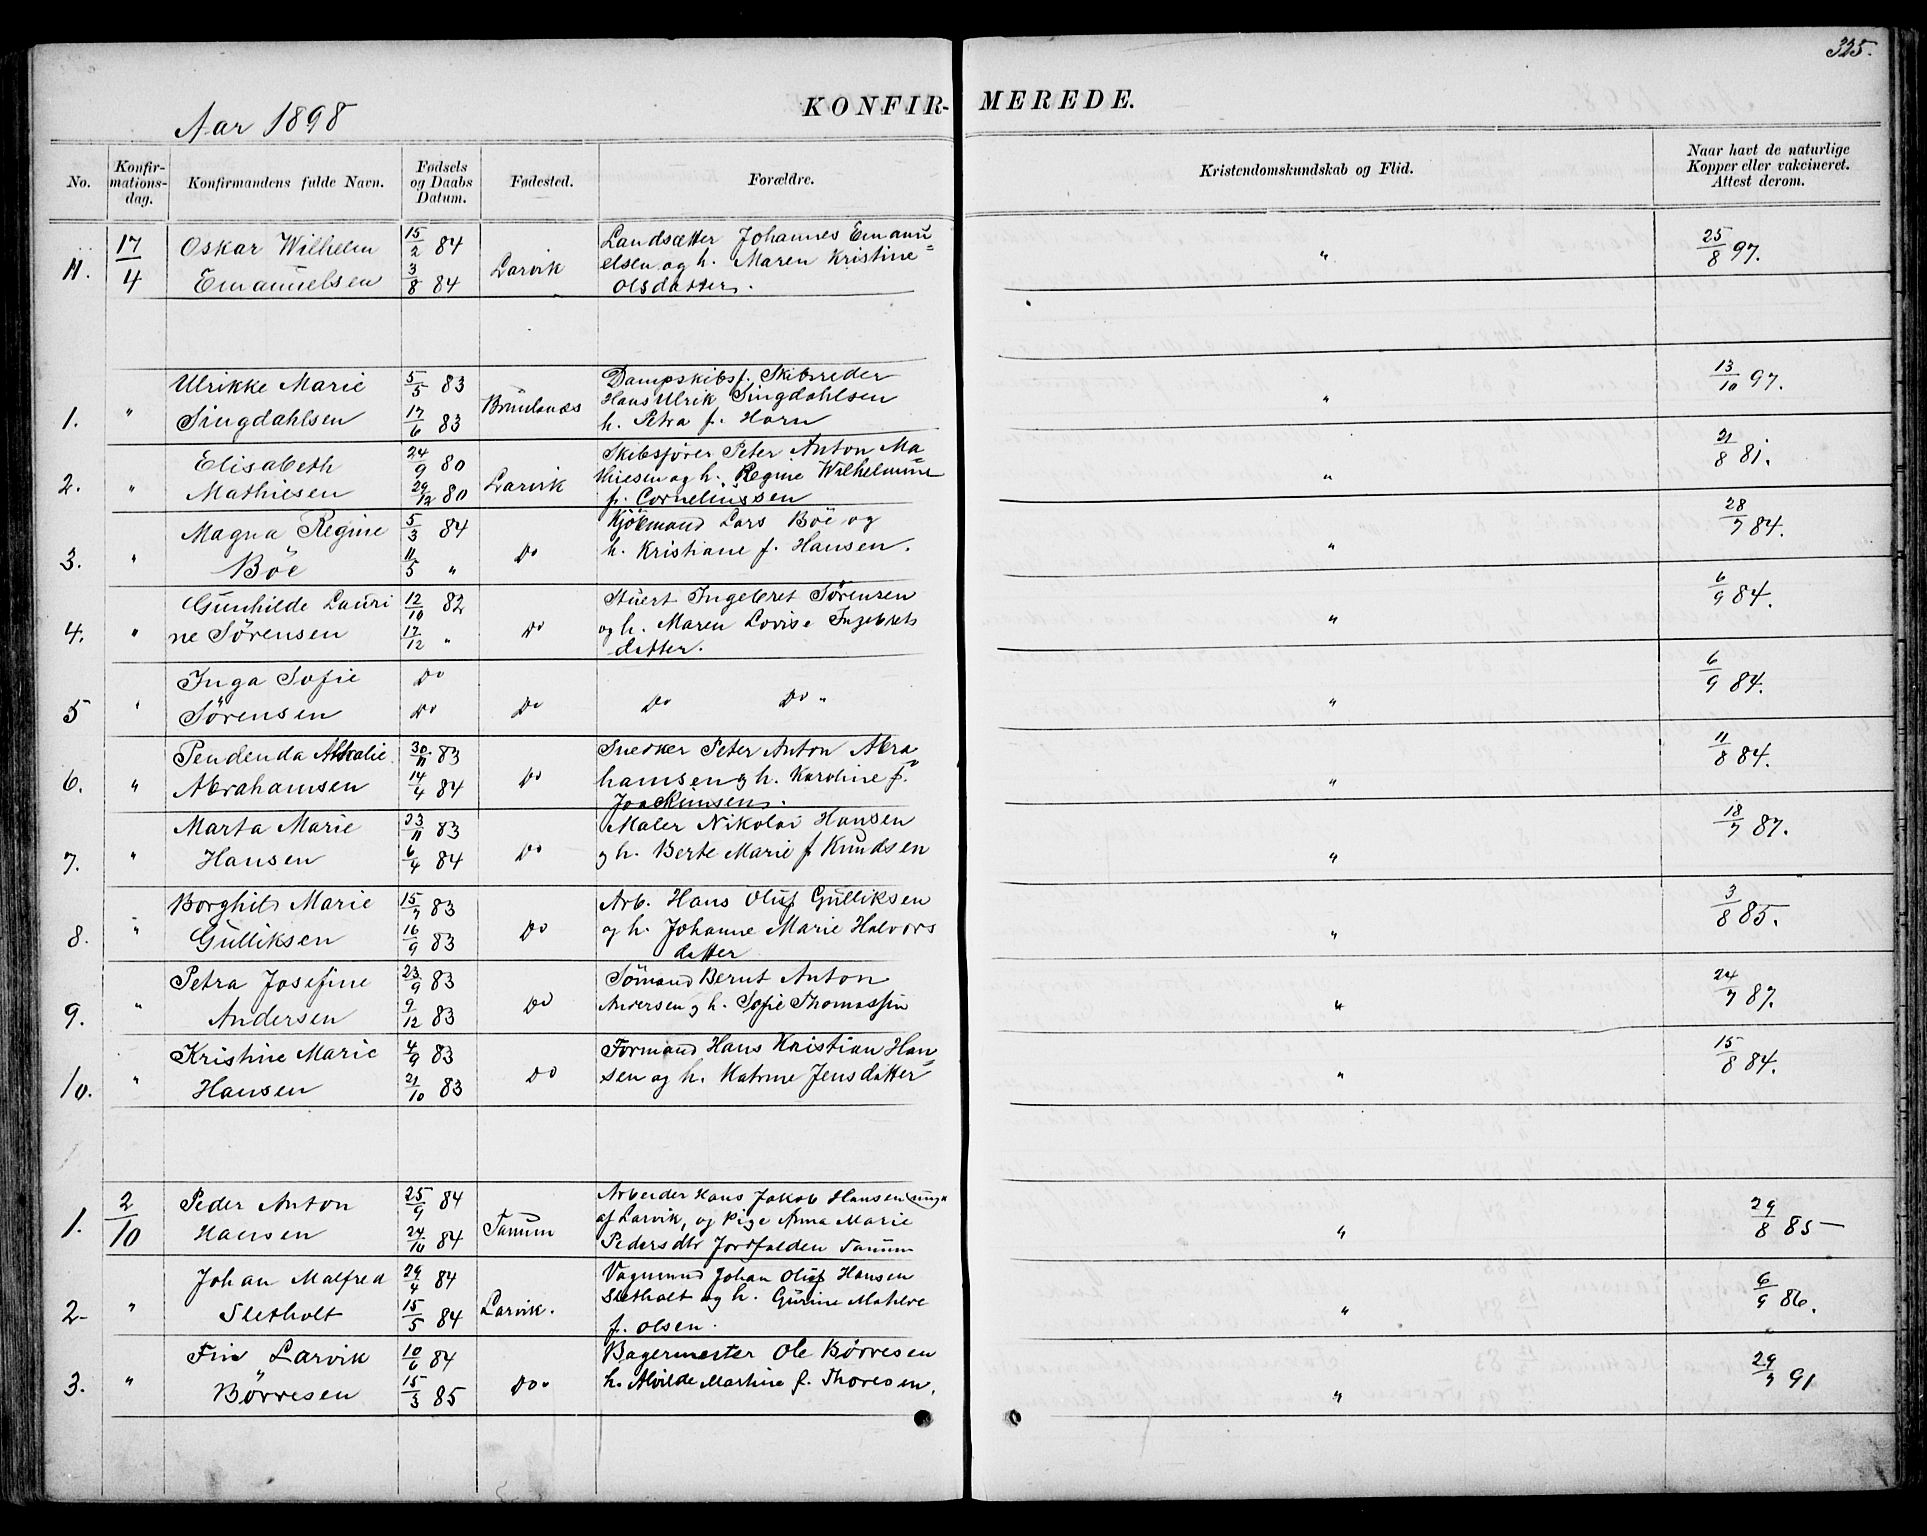 325.
Aar 1898
KONFIR- MEREDE.
No. Konfir-mations-dag. Konfirmandens fulde Navn. Fødsels og Daabs Datum. Fødested. Forældre. Kristendomskundskab og Flid. Naar havt de naturlige Kopper eller vakcineret. Attest derom.
11. 17/4 Oskar Wilhelm 15/2 84 Larvik Landsætter Johannes Emanu=
Emanuelsen 3/8 84 elsen og h. Maren Kristine
Olsdatter. " 25/8 97.
1. " Ulrikke Marie 5/5 83 Brunlanæs Dampskibsf. Skibsreder
Singdahlsen 17/6 83 Hans Ulrik Singdahlsen
h. Petra f. Horn " 13/10 97.
2. " Elisabeth 24/9 80 Larvik Skibsfører Peter Anton Ma=
Mathiesen 29/12 80 thiesen og h. Regine Wilhelmine
f. Corneliussen " 21/8 81.
3. " Magna Regine 5/3 84 Do Kjöbmand Lars Böe og
Böe 11/5 " h. Kristiane f. Hansen. " 28/7 84.
4. " Gunhilde Lauri 12/10 82 Do Stuert Ingebret Sørensen
ne Sörensen 17/12 " og h. Maren Lovise Ingebrets
datter. " 6/9 84.
5 " Inga Sofie Do
Sörensen Do Do Do Do " " 6/9 84.
6. " Pendenda 30/11 83 Do Snedker Peter Anton Abra
Abrahamsen 14/4 84 hamsen og h. Karoline f.
Joackimsen. " 11/8 84.
7. " Marta Marie 23/11 83 Do Maler Nikolai Hansen
Hansen 6/4 84 og h. Berte Marie f Knudsen " 18/7 87.
8. " Borghild Marie 15/7 83 Do Arb. Hans Oluf Gulliksen
Gulliksen 16/9 83 og h. Johanne Marie Halvors
datter " 3/8 85.
9. " Petra Josefine 23/9 83 Do Sömand Bernt Anton
Andersen 9/12 83 Andersen og h. Sofie Thomassen " 24/7 87.
10. " Kristine Marie 4/9 83 Do Formand Hans Kristian Han=
Hansen 21/10 83 sen og h. Katrine Jensdatter " 15/8 84.
1. 2/10 Peder Anton 25/9 84 Tanum Arbeider Hans Jakob Hansen (ungk
Hansen 24/10 84 af Larvik, og Pige Anna Marie
Pedersdtr Jordfalden Tanum " 29/8 85
2 " Johan Malfred 29/4 84 Larvik. Vognmand Johan Oluf Hansen
Sletholt 15/5 84 Sletholt og h. Gurine Mathie
f. Olsen. " 6/9 86.
3. " Fin Larvik 10/6 84 Do. Bagermester Ole Børresen
Börresen 15/3 85 h. Alvilde Martine f. Thoresen. " 29/7 91